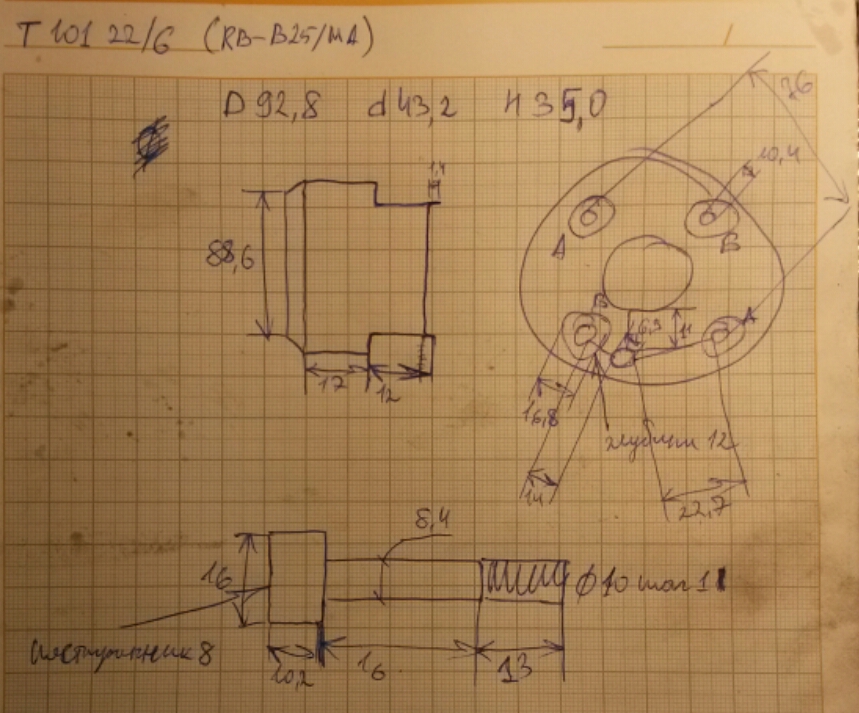 T 101 22/6 (RB-B25/MA)
D 92,8 d 43,2 H 35,0
1,4
36
10,4
88,6
A
B
B
A
6,3
11
17
12
16,8
14
глубина 12
22,7
8,4
16
Ф10 шаг 1
шестигранник 8
10,2
16
13